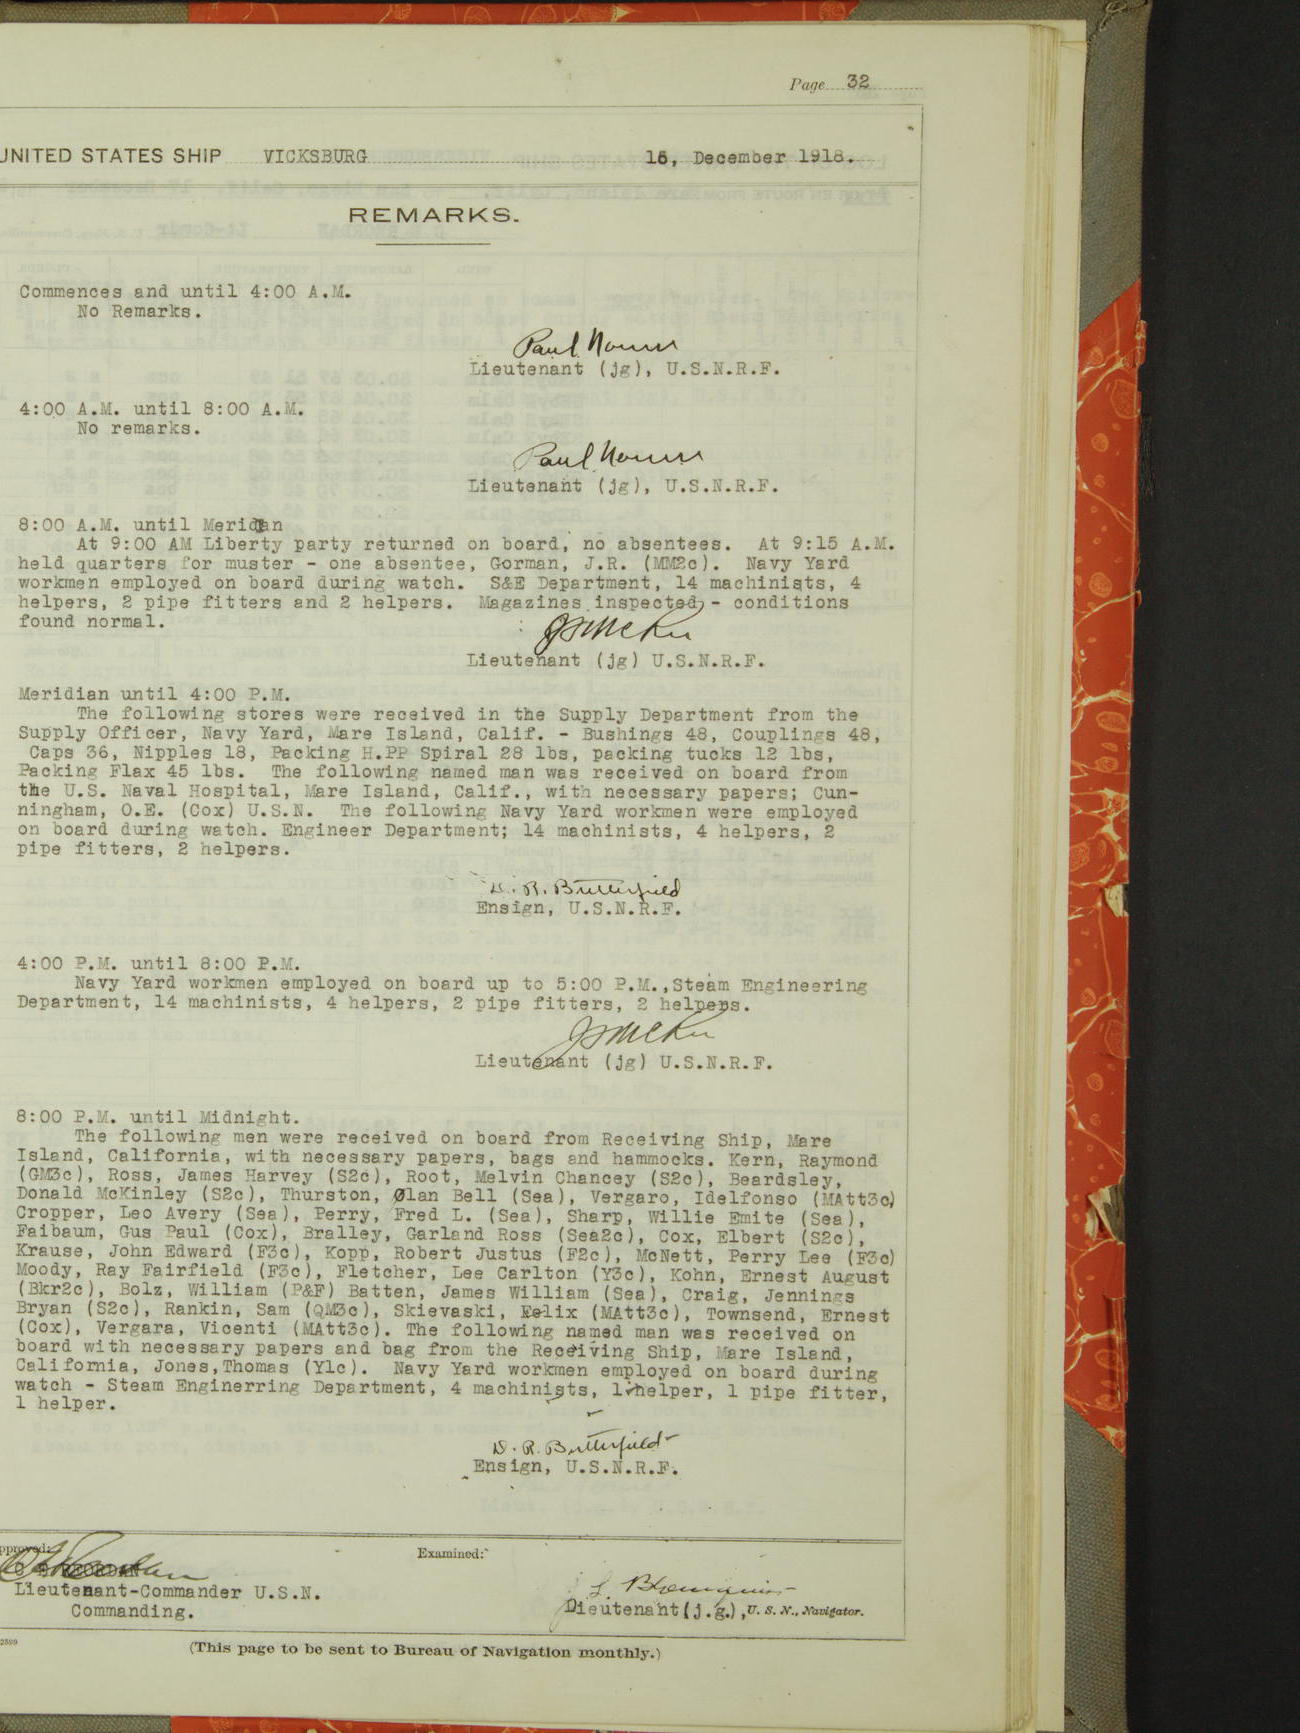 Page 32
UNITED STATES SHIP VICKSBURG 16, December 1918.
REMARKS.
Commences and until 4:00 A.M.
No Remarks.
Paul
Lieutenant (jg), U.S.N.R.F.
4:00 A.M. until 8:00 A.M.
No remarks.
Paul
Lieutenant (jg), U.S.N.R.F.
8:00 A.M. until Meridan
At 9:00 AM Liberty party returned on board, no absentees. At 9:15 A.M.
held quarters for muster - one absentee, Gorman, J.R. (MM2c). Navy Yard
workmen employed on board during watch. S&E Department, 14 machinists, 4
helpers, 2 pipe fitters and 2 helpers. Magazines inspected - conditions
found normal.
Lieutenant (jg) U.S.N.R.F.
Meridian until 4:00 P.M.
The following stores were received in the Supply Department from the
Supply Officer, Navy Yard, Mare Island, Calif. - Bushings 48, Couplings 48,
Caps 36, Nipples 18, Packing H.PP Spiral 28 lbs, packing tucks 12 lbs,
Packing Flax 45 lbs. The following named man was received on board from
the U.S. Naval Hospital, Mare Island, Calif., with necessary papers; Cun-
ningham, O.E. (Cox) U.S.N. The following Navy Yard workmen were employed
on board during watch. Engineer Department; 14 machinists, 4 helpers, 2
pipe fitters, 2 helpers.
D. R. Butterfield
Ensign, U.S.N.R.F.
4:00 P.M. until 8:00 P.M.
Navy Yard workmen employed on board up to 5:00 P.M.,Steam Engineering
Department, 14 machinists, 4 helpers, 2 pipe fitters, 2 helpers.
Lieutenant (jg) U.S.N.R.F.
8:00 P.M. until Midnight.
The following men were received on board from Receiving Ship, Mare
Island, California, with necessary papers, bags and hammocks. Kern, Raymond
(GM3c), Ross, James Harvey (S2c), Root, Melvin Chancey (S2c), Beardsley,
Donald McKinley (S2c), Thurston, Olan Bell (Sea), Vergaro, Idelfonso (MAtt3c)
Cropper, Leo Avery (Sea), Perry, Fred L. (Sea), Sharp, Willie Emite (Sea),
Faibaum, Gus Paul (Cox), Bralley, Garland Ross (Sea2c), Cox, Elbert (S2c),
Krause, John Edward (F3c), Kopp, Robert Justus (F2c), McNett, Perry Lee (F3c)
Moody, Ray Fairfield (F3c), Fletcher, Lee Carlton (Y3c), Kohn, Ernest August
(Bkr2c), Bolz, William (P&F) Batten, James William (Sea), Craig, Jennings
Bryan (S2c), Rankin, Sam (QM3c), Skievaski, Felix (MAtt3c), Townsend, Ernest
(Cox), Vergara, Vicenti (MAtt3c). The following named man was received on
board with necessary papers and bag from the Receiving Ship, Mare Island,
California, Jones,Thomas (Y1c). Navy Yard workmen employed on board during
watch - Steam Enginerring Department, 4 machinists, 1 helper, 1 pipe fitter,
1 helper.
D. R. Butterfield
Ensign, U.S.N.R.F.
pproved:
Examined:
Lieutenant-Commander U.S.N.
Commanding.
Lieutenant(j.g.),U. S. N., Navigator.
(This page to be sent to Bureau of Navigation monthly.)